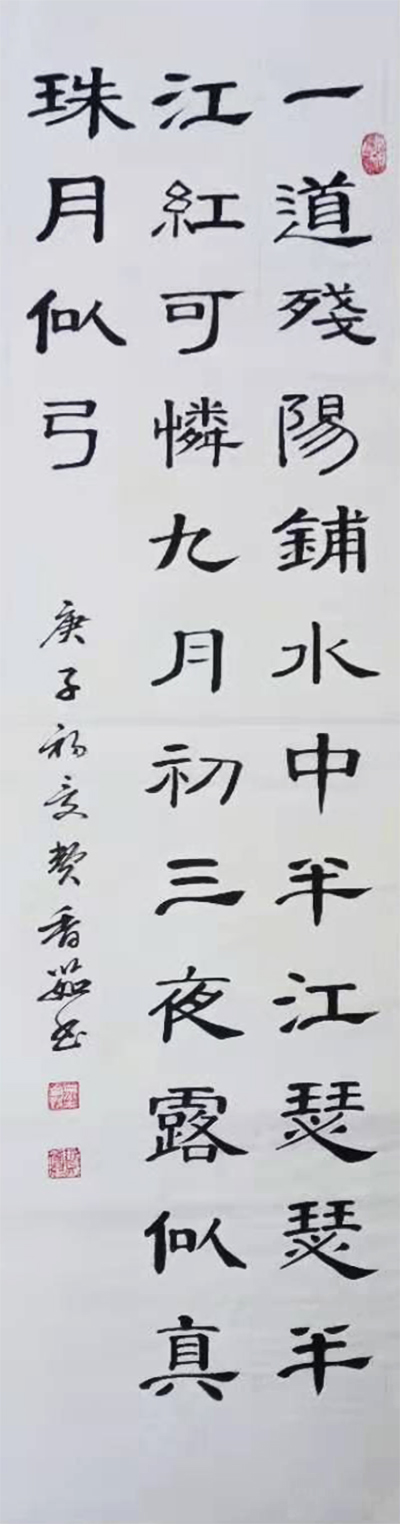 一道殘陽鋪水中半江瑟瑟半
江紅可憐九月初三夜露似真
珠月似弓
庚子初夏樊香茹书